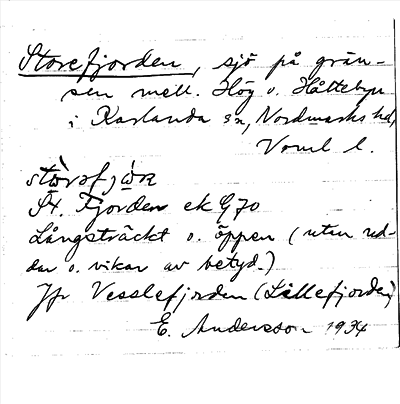 Storefjorden, sjö på grän-
sen mell. Hög o. Håltebyn
i Karlanda sn, Nordmarks hd,
Vrml l.
St. Fjorden ek G 70
Långsträckt o. öppen (utan ud-
dar o. vikar av betyd.)
Jfr Vesslefjorden (Lillefjorden)
E. Andersson 1934